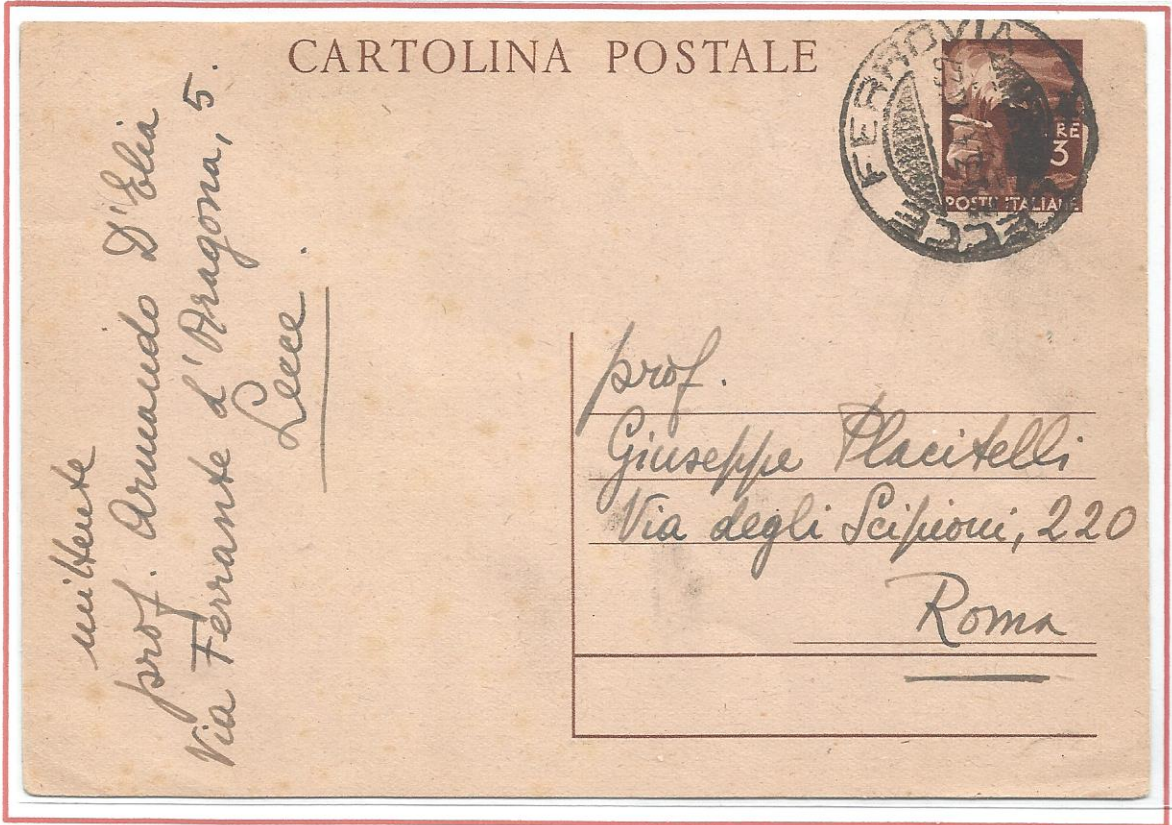 CARTOLINA POSTALE
LECCE FERROVIA
LIRE
3
POSTE ITALIANE
mittente
prof. Armando D'Elia
Via Ferrante d'Aragona, 5.
Lecce
prof.
Giuseppe Placitelli
Via degli Scipioni, 220
Roma